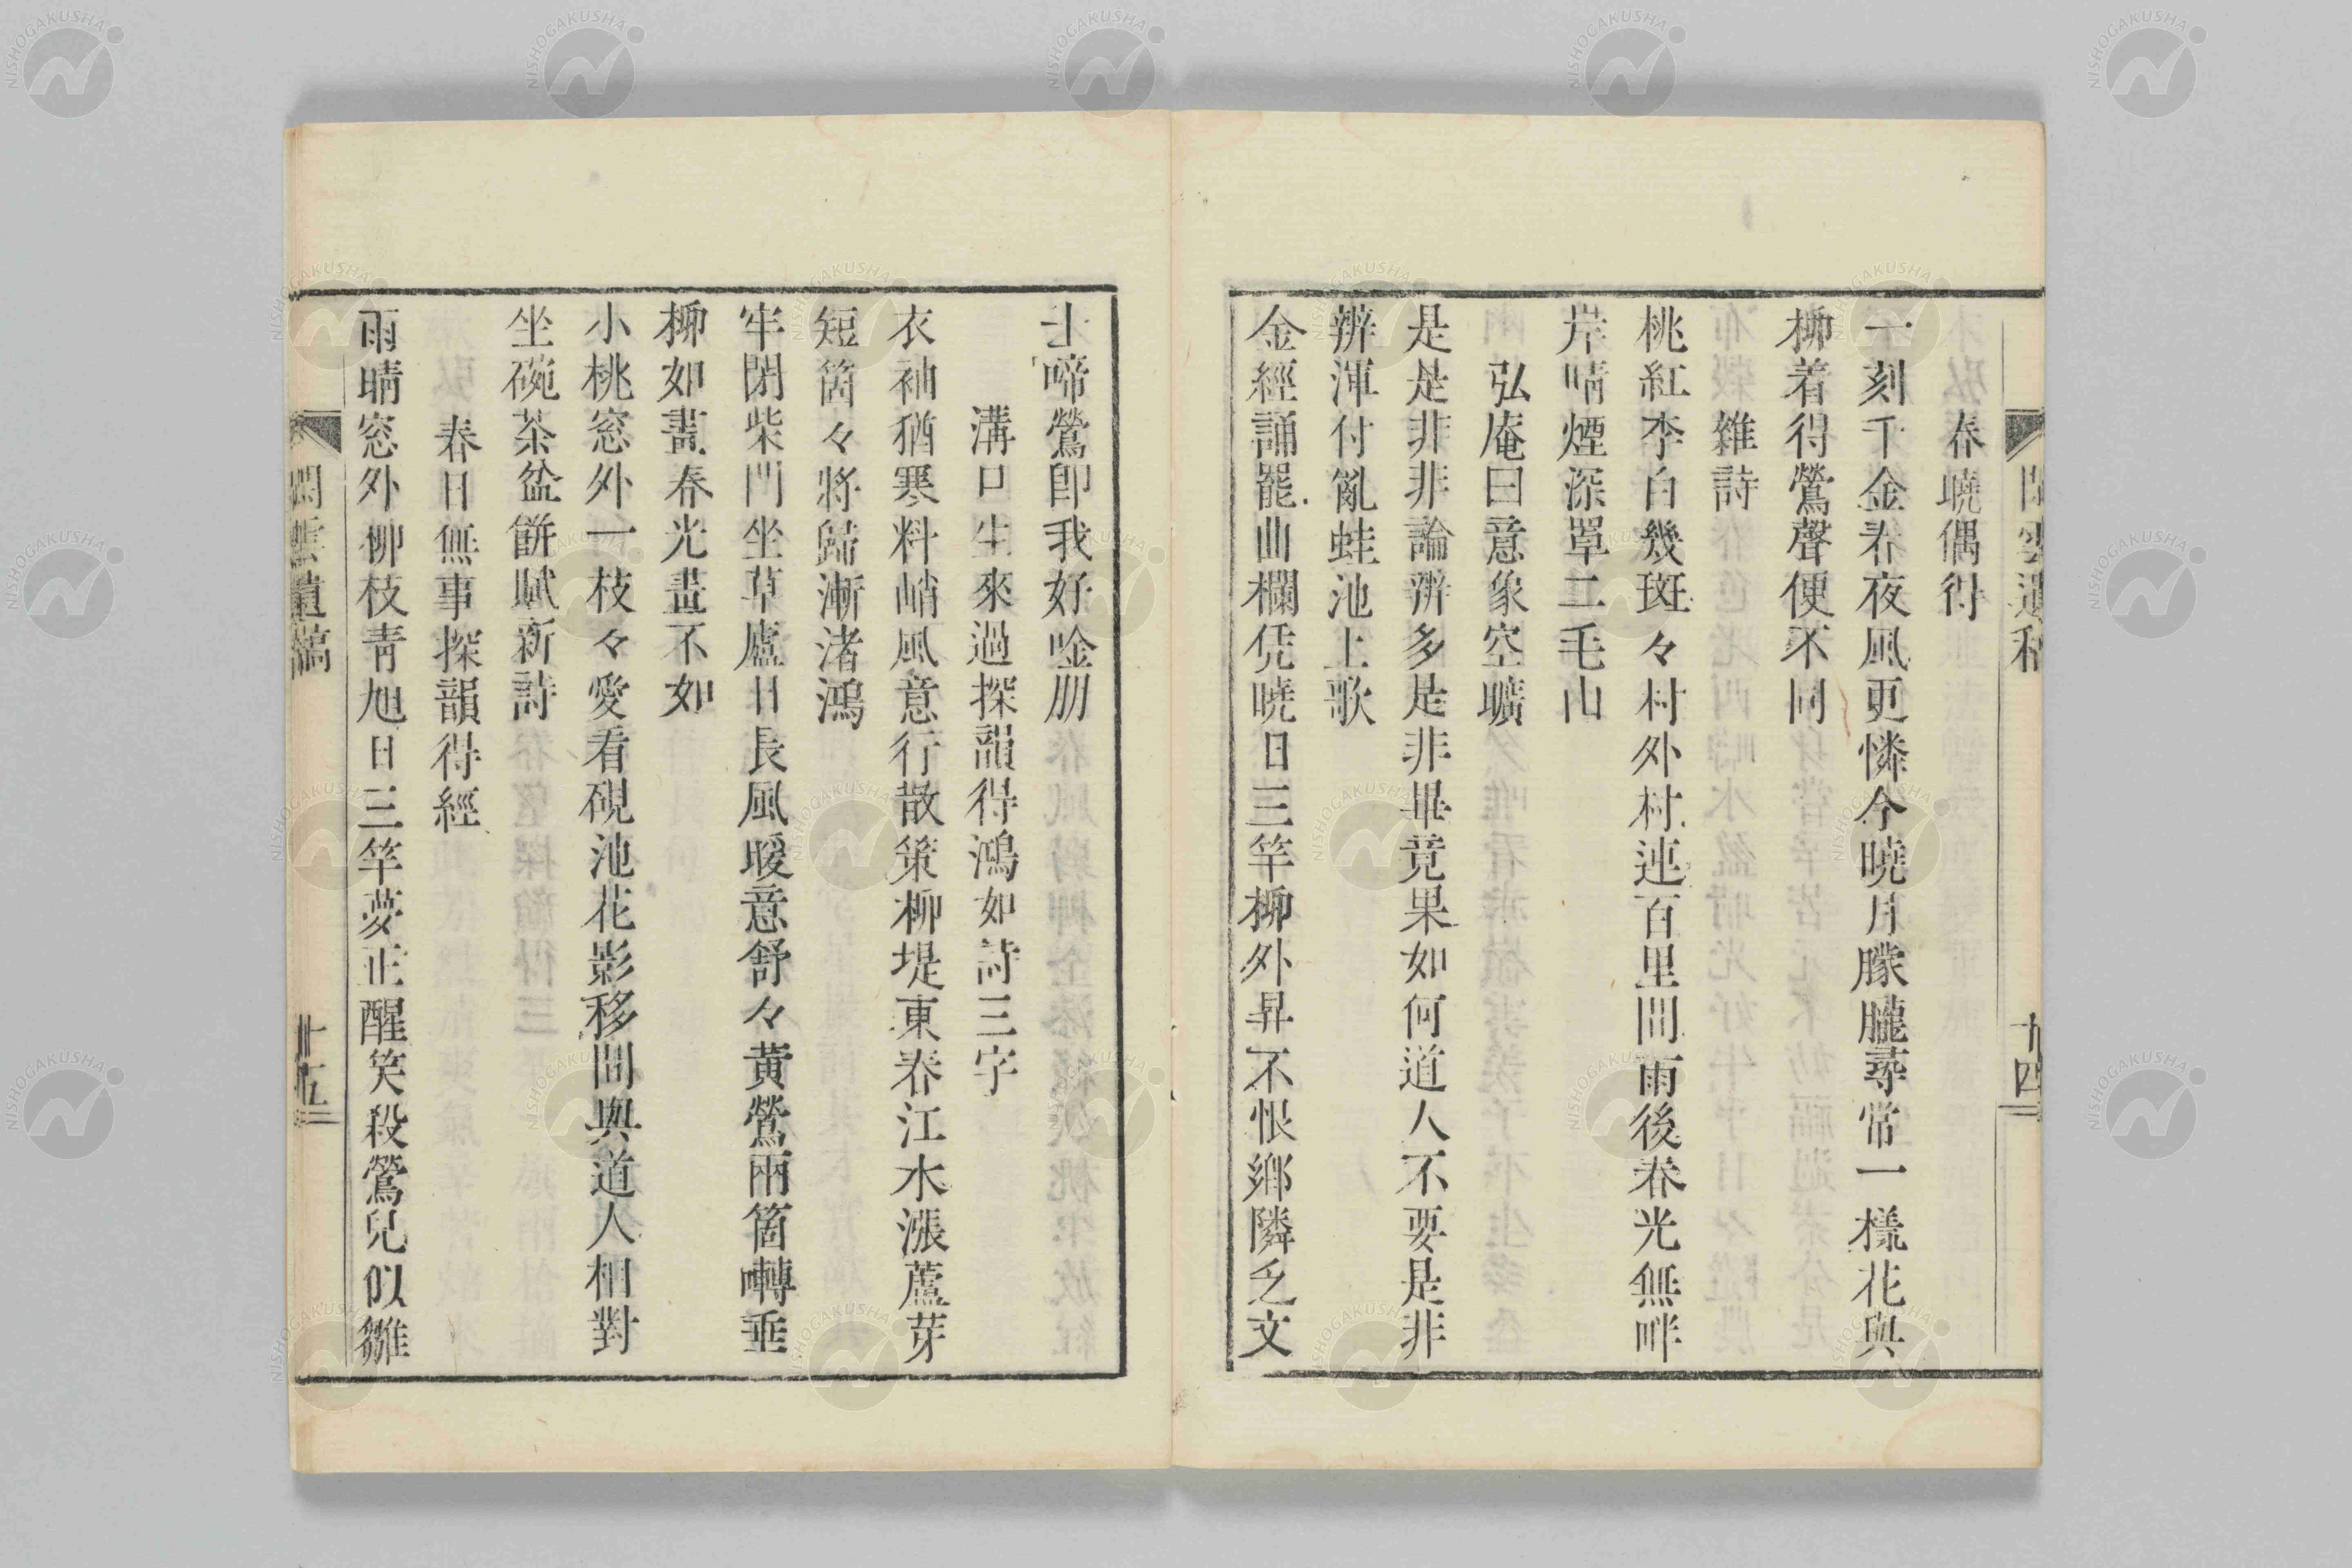 春曉偶得
一刻千金春夜風更憐今曉月朦朧尋常一樣花與
柳着得鶯聲便不同
雜詩
桃紅李白幾斑々村外村連百里間雨後春光無畔
岸晴煙深罩二毛山
弘庵曰意象空曠
是是非非論辨多是非畢竟果如何道人不要是非
辨渾付亂蛙池上歌
金經誦罷曲欄凭曉日三竿柳外昇不恨鄉隣乏文
士啼鶯卽我好唫朋
溝口生來過探韻得鴻如詩三字
衣袖猶寒料峭風意行散策柳堤東春江水漲蘆芽
短箇々將歸漸渚鴻
牢閉柴門坐草廬日長風暖意舒々黃鶯兩箇囀垂
柳如畵春光畫不如
小桃窓外一枝々愛看硯池花影移間與道人相對
坐碗茶盆餅賦新詩
春日無事探韻得經
雨晴窓外柳枝靑旭日三竿夢正醒笑殺鶯兒似雛
雲遺稿
十五
NISHOGAKUSHA